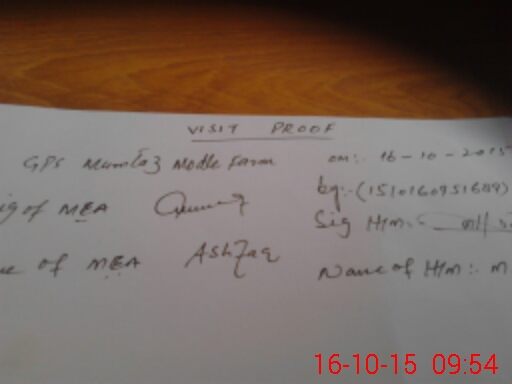 VISIT PROOF
GPS Mumtaz Modle Farm on:. 16-10-2015
ig of MEA bg:-(1510160951689)
Sig HTM:-
e of MEA Ashfaq Name of HTM:- M
16-10-15 09:54